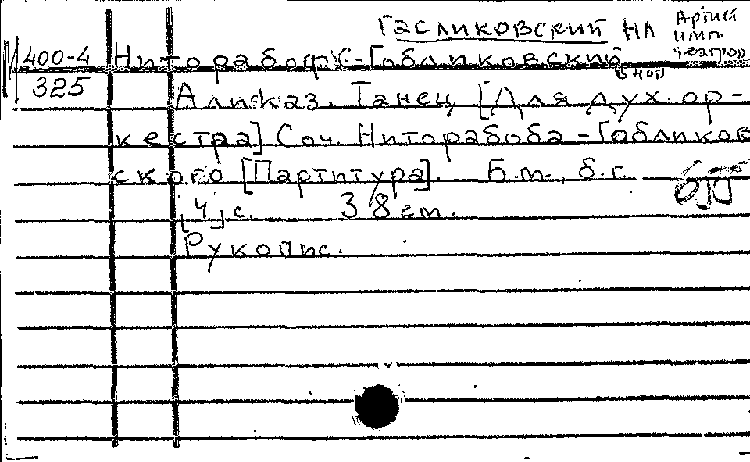 Гасликовский НА Артист
имп.
театров
400-4 Ниторабоф-Габликовский
325 Аликаз. Танец [Для дух. ор-
кестра] Соч. Ниторабоба-Габликов
ского [Партитура]. Б.м., б.г.
[4] с. 38 см.
Рукопис.